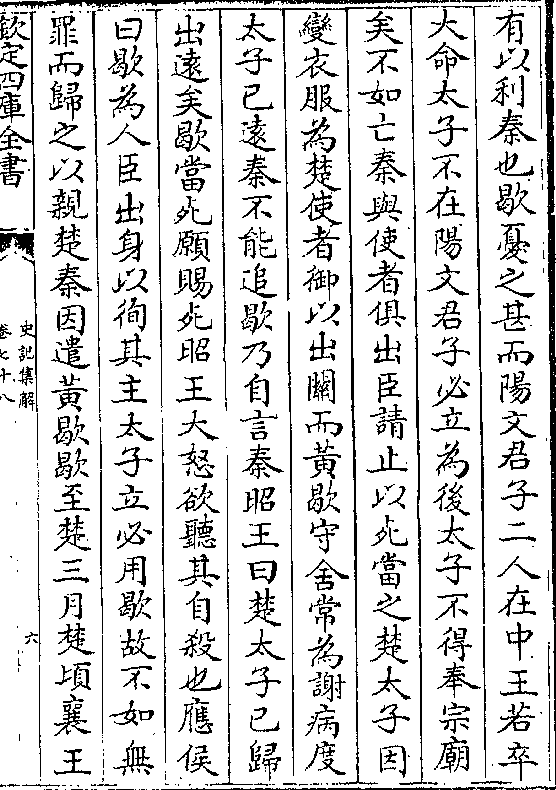 有以利秦也歇憂之甚而陽文君子二人在中王若卒
大命太子不在陽文君子必立為後太子不得奉宗廟
矣不如亡秦與使者俱出臣請止以死當之楚太子因
變衣服為楚使者御以出關而黃歇守舍常為謝病度
太子已遠秦不能追歇乃自言秦昭王曰楚太子已歸
出遠矣歇當死願賜死昭王大怒欲聽其自殺也應侯
曰歇為人臣出身以徇其主太子立必用歇故不如無
罪而歸之以親楚秦因遣黃歇歇至楚三月楚頃襄王
欽定四庫全書
史記集解
卷七十八
六